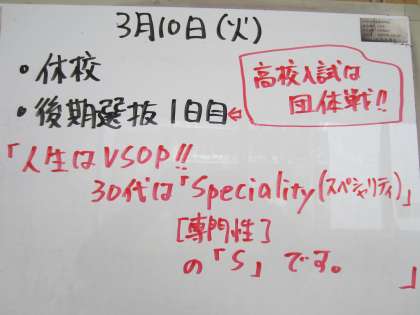 3月10日(火)
・休校
・後期選抜 1日目⇦
高校入試は
団体戦!!
「人生はVSOP!!
30代は「Speciality(スペシャリティ)」
[専門性]
の「S」です。
」